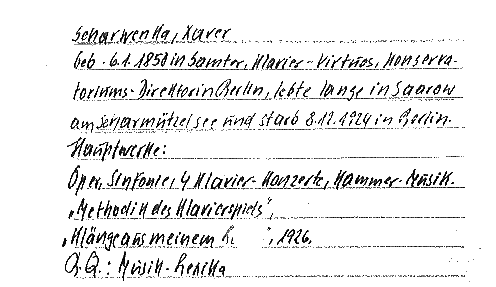 Scharwenka, Xaver
geb. 6.1.1850 in Samter, Klavier-Virtuos, Konserva-
toriums-Direktor in Berlin, lebte lange in Saarow
am Scharmützelsee und starb 8.12.1924 in Berlin.
Hauptwerke:
Oper, Sinfonie, 4 Klavier-Konzerte, Kammer-Musik.
"Methodik des Klavierspiels",
"Klänge aus meinem L ", 1926.
Q.Q.: Musik-Lexika